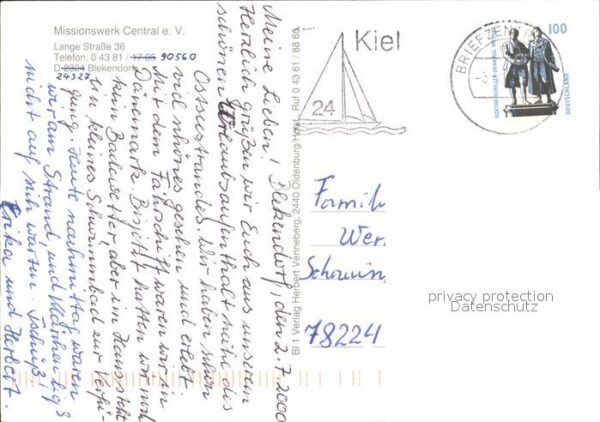 Missionswerk Central e. V.
Lange Straße 36
Telefon: 0 43 81 / 17 05 90560
D-2324 Blekendorf
24327
Blekendorf, den 2.7.2000
Meine Lieben!
Herzlich grüßen wir Euch aus unserem
schönen Urlaubsaufenthalt nahe des
Ostseestrandes. Wir haben schon
viel schönes gesehen und erlebt.
Mit dem Fahrschiff waren wir in
Dänemark. Bis jetzt hatten wir noch
kein Badewetter, aber im Haus steht
ein kleines Schwimmbad zur Verfü-
gung. Heute nachmittag waren
wir am Strand, und
nicht auf sich warten. Tschüß
Erika und Herbert.
BI 1 Verlag Herbert Venneberg, 2440 Oldenburg/Holst., Ruf 0 43 61 / 88 60
Kiel
24
BRIEFZENTRUM
100
GOETHE-SCHILLER-DENKMAL
DEUTSCHLAND
Famili
Wer
Schwin
78224
privacy protection
Datenschutz